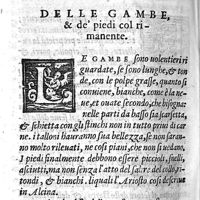 DELLE GAMBE,
& de' piedi col ri-
manente.
LE GAMBE sono uolentieri ri
guardate, se sono lunghe, & ton
de, con le polpe grasse, quanto si
conuiene, bianche, come è la ne-
ue, et ouate secondo, che bisogna:
nelle parti da basso sia scarsetta,
& schietta con gli stinchi non in tutto priui di car
ne. i talloni hauranno sua bellezza, se non saran-
no molto rileuati, ne così piani, che non si uedano.
I piedi finalmente debbono essere piccioli, snelli,
asciutti, ma non senza l'atto del salire del collo, ri-
tondi, & bianchi. liquali l'Ariosto così descriue
in Alcina.